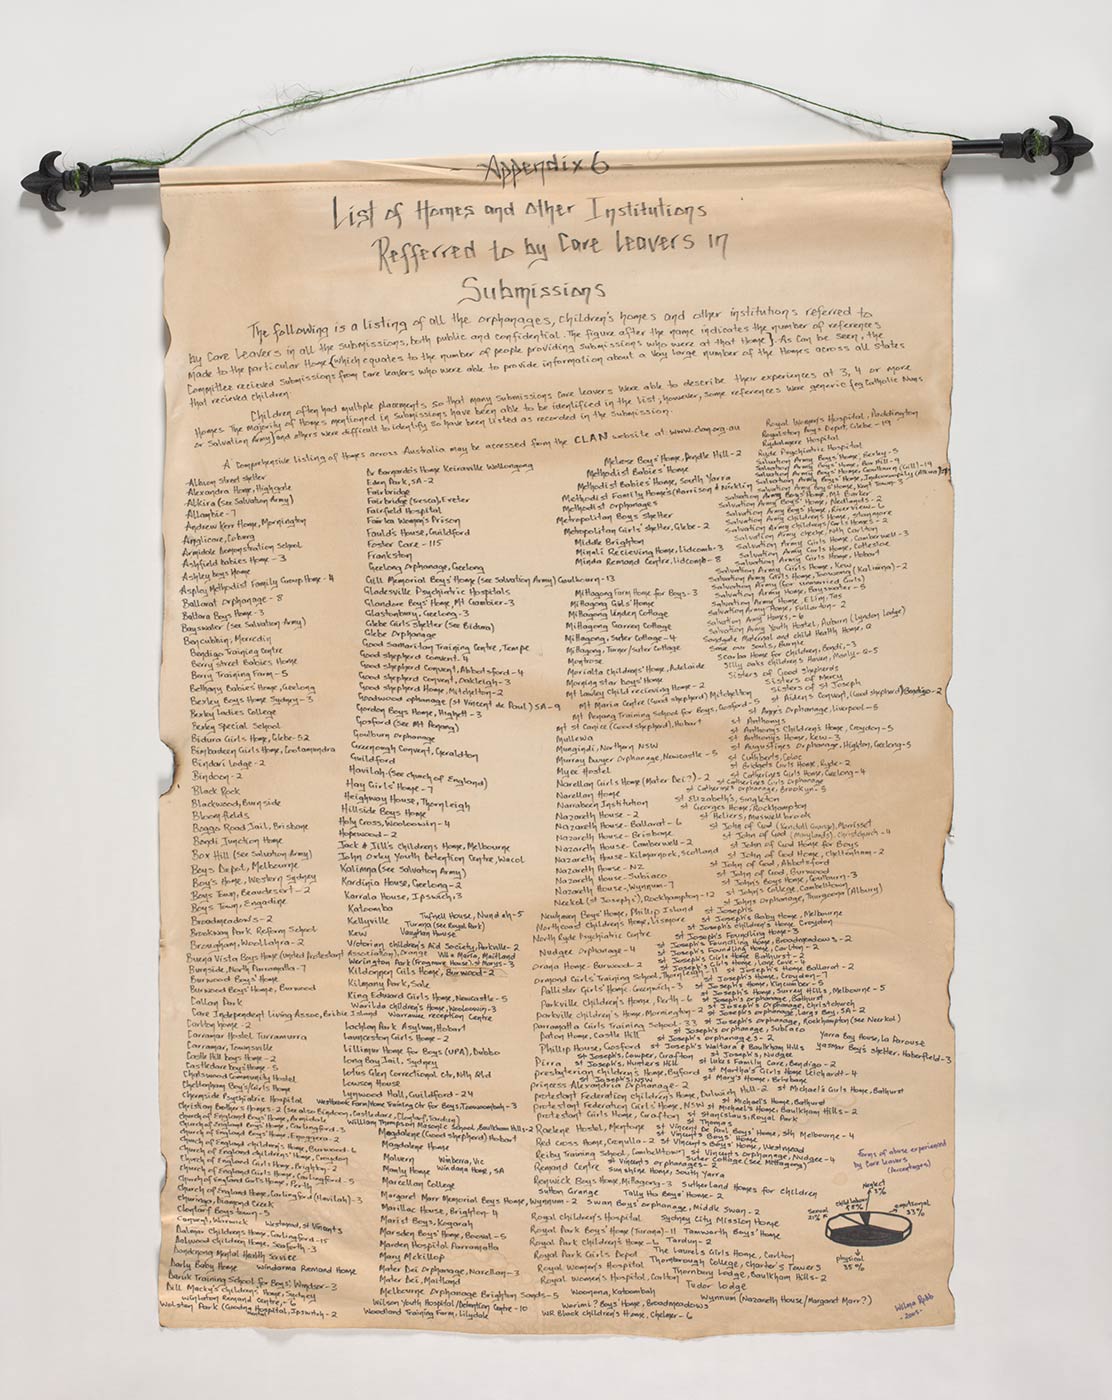 Appendix 6
List of Homes and Other Institutions
Refferred to by Care Leavers in
Submissions
The following is a listing of all the orphanages, children's homes and other institutions referred to
by Care Leavers in all the submissions, both public and confidential. The figure after the name indicates the number of references
made to the particular Home (which equates to the number of people providing submissions who were at that Home). As can be seen, the
Committee recieved submissions from Care leavers who were able to provide information about a very large number of the Homes across all States
that recieved children.
Children often had multiple placements so that many submissions Care leavers were able to describe their experiences at 3, 4 or more
Homes. The majority of Homes mentioned in submissions have been able to be identified in the list, however, some references were generic (eg Catholic Nuns
or Salvation Army) and others were difficult to identify so have been listed as recorded in the submission.
A comprehensive listing of Homes across Australia may be accessed from the CLAN website at: www.clan.org.au
Albion street shelter
Alexandra Home, Highgate
Alkira (see Salvation Army)
Allambie - 7
Andrew Kerr Home, Mornington
Anglicare, Coburg
Armidale Demonstration School
Ashfield babies Home - 3
Ashley boys Home
Aspley Methodist Family Group Home - 4
Ballarat Orphanage - 8
Baltara Boys Home - 3
Bayswater (see Salvation Army)
Bencubbin, Merredin
Bendigo Training Centre
Berry street Babies Home
Berry Training Farm - 5
Bethany Babies' Home, Geelong
Bexley Boys Home Sydney - 3
Bexley Ladies College
Bexley Special School
Bidura Girls Home, Glebe - 52
Bimbadeen Girls Home, Cootamundra
Bindari Lodge - 2
Bindoon - 2
Black Rock
Blackwood, Burnside
Bloomfields
Boggo Road Jail, Brisbane
Bondi Junction Home
Box Hill (see Salvation Army)
Boys Depot, Melbourne
Boy's Home, Western Sydney
Boys Town, Beaudesert - 2
Boys Town, Engadine
Broadmeadows - 2
Brookway Park Reform School
Brougham, Woollahra - 2
Buena Vista Boys Home (United Protestant Association), Orange
Burnside, North Parramatta - 7
Burwood Boys' Home
Burwood Boys' Home, Burwood
Callan Park
Care Independent Living Assoc, Bribie Island
Carlton home - 2
Carramar Hostel Turramurra
Carramar, Townsville
Castle Hill boys Home - 2
Castledare boys Home - 5
Chatswood Community Hostel
Cheltenham Boy's/Girls Home
Chermside Psychiatric Hospital
Christian Brothers Homes - 2 (see also Bindoon, Castledare, Clontarf, Tardun)
Church of England Boys' Home, Armidale
Church of England Boys' Home, Carlingford - 3
Church of England Boys' Home, Enoggera - 2
Church of England children's Home, Burwood - 6
Church of England children's Home, Croydon
Church of England Girls Home, Brighton - 2
Church of England Girls Home, Carlingford - 5
Church of England Girl's Home, Perth
Church of England Home, Carlingford (Havilah) - 3
Churinga, Diamond Creek
Clontarf Boys' town - 5
Westmead, St Vincents
Dalmar Children's Home, Carlingford - 15
Dalwood children's Home, Seaforth - 3
Dandenong Mental Health Service
Darly Baby Home
Windarma Remand Home
Daruk Training School for Boys, Windsor - 3
Dill Macky's children's Home, Sydney
Winlaton Remand Centre, - 6
Wolston Park (Goodna Hospital), Ipswich - 2
Dr Barnardo's Home Keiraville Wollongong
Eden Park, SA - 2
Fairbridge
Fairbridge (s'essa), Exeter
Fairfield Hospital
Fairlea Women's Prison
Fauld's House, Guildford
Foster Care - 115
Frankston
Geelong Orphanage, Geelong
Gill Memorial Boys' Home (see Salvation Army) Goulbourn - 13
Gladesville Psychiatric Hospitals
Glandore Boys' Home, Mt Gambier - 3
Glastonbury, Geelong - 3
Glebe Girls Shelter (See Bidura)
Glebe Orphanage
Good Samaritan Training Centre, Tempe
Good shepherd Convent - 4
Good shepherd Convent, Abbotsford - 4
Good shepherd Convent, Oakleigh - 3
Good shepherd Home, Mitchelton - 2
Goodwood ophanage (St Vincent de Paul) SA - 9
Gordon Boys Home, Highett - 3
Gosford (See Mt Penang)
Goulburn Orphanage
Greenough Convent, Geraldton
Guildford
Havilah (See church of England)
Hay Girls' Home - 7
Heighway House, Thornleigh
Hillside Boys Home
Holy Cross, Wooloowin - 4
Hopewood - 2
Jack & Jill's Childrens Home, Melbourne
John Oxley Youth Detention Centre, Wacol
Kalimna (see Salvation Army)
Kardinia House, Geelong - 2
Karrala House, Ipswich, 3
Katoomba
Tufnell House, Nundah - 5
Kellyville
Turana (see Royal Park)
Kew
Vaughan House
Victorian Children's Aid Society, Parkville - 2
Villa Maria, Maitland
Werington Park (Frogmore House) St Marys - 3
Kildonan Girls Home, Burwood - 2
Kilmany Park, Sale
King Edward Girls Home, Newcastle - 5
Warilda children's Home, Wooloowin - 3
Warrawee, reception Centre
Lachlan Park Asylum, Hobart
Launceston Girls Home - 2
Lillimur Home for Boys (UPA), Dubbo
Long Bay Jail, Sydney
Lotus Glen Correctional Ctr, Nth Qld
Lawson House
Lynwood Hall, Guildford - 24
Westbrook Farm Home Training Ctr for Boys, Toowoomba - 3
William Thompson Masonic School, Baulkham Hills - 2
Magdalene (Good shepherd) Hobart
Magdalene Home
Malvern
Winberra, Vic
Manly Home
Windana Home, SA
Marcellan College
Margaret Marr Memorial Boys Home, Wynnum - 2
Marillac House, Brighton - 4
Marist Boys, Kogarah
Marsden Boys' Home, Booval - 5
Marsden Hospital Parramatta
Mary Mckillop
Mater Dei Orphanage, Narellan - 3
Mater Dei, Maitland
Melbourne Orphanage Brighton Sands - 5
Wilson Youth Hospital/Detention Centre - 10
Woodland Training Farm, Lilydale
Melrose Boys' Home, Pendle Hill - 2
Methodist Babies' Home
Methodist Babies' Home, South Yarra
Methodist Family Home's (Harrison & Nicklin
Methodist Orphanages
Metropolitan Boys shelter
Metropolitan Girls' shelter, Glebe - 2
Middle Brighton
Minali Recieving Home, Lidcomb - 3
Minda Remand Centre, Lidcomb - 8
Mittagong Farm Home for Boys - 3
Mittagong Girls' Home
Mittagong Linden Cottage
Mittagong Garren Cottage
Mittagong, Suter Cottage - 4
Mittagong, Turner/Suter Cottage
Montrose
Morialta Childrens' Home, Adelaide
Morning star boys' Home
Mt Lawley Child recieving Home - 2
Mt Maria Centre (Good shepherd) Mitchelton
Mt Penang Training School for Boys, Gosford - 5
Mt St Canice (Good shepherd), Hobart
Mullewa
Mungindi, Northern NSW
Murray Dwyer Orphanage, Newcastle - 5
Myee Hostel
Narellan Girls Home (Mater Dei?) - 2
Narellan Home
Narrabeen Institution
Nazareth House - 2
Nazareth House - Ballarat - 6
Nazareth House - Brisbane
Nazareth House - Camberwell - 2
Nazareth House - Kilmarnock, Scotland
Nazareth House - NZ
Nazareth House - Subiaco
Nazareth House, Wynnum - 7
Neekol (St Joseph's), Rockhampton - 12
Newhaven Boys' Home, Phillip Island
Northcoast Children's Home, Lismore
North Ryde Psychiatric Centre
Nudgee Orphanage - 4
Orana Home - Burwood - 2
Ormond Girls Training School, Thornleigh - 11
Pallister Girls' Home Greenwich - 3
Parkville Children's Home, Perth - 6
Parkville children's Home, Mornington - 2
Parramatta Girls Training School - 33
Paton Home, Castle Hill
Phillip House, Gosford
Pirra
Presbyterian children's Home, Byford
Princess Alexandria Orphanage - 2
Protestant Federation children's Home, Dulwich Hill - 2
Protestant Federation Girls' Home, NSW
Protestant Girls Home, Grafton
Raelene Hostel, Mentone
Red Cross Home, Cronulla - 2
Reiby Training School, Cambelltown
Remand Centre
Renwick Boys Home, Mittagong - 3
Sutton Grange
Tally Ho Boys' Home - 2
Swan Boys' orphanage, Middle Swan - 2
Royal Children's Hospital
Royal Park Boys' Home (Turana) - 11
Royal Park Children's Home - 6
Royal Park Girls Depot
Royal Women's Hospital
Royal Women's Hospital, Carlton
Woonona, Katoombah
Werimi? Boys' Home, Broadmeadows
WR Black children's Home, Chelmer - 6
Royal Women's Hospital, Paddington
Royalston Boys Depot, Glebe - 19
Rydalmere Hospital
Ryde Psychiatric Hospital
Salvation Army Boys' Home, Bexley - 5
Salvation Army Boys' Home, Box Hill - 9
Salvation Army Boys' Home, Goulburn (Gill) - 19
Salvation Army Boys' Home, Indooroopilly (Alkira)
Salvation Army Boy's Home, Kent Town - 3
Salvation Army Boys Home, Mt Barker
Salvation Army Boys' Home, Nedlands - 2
Salvation Army Boys' Home, Riverview - 6
Salvation Army Childrens Home, Stanmore
Salvation Army children's/Girls' Homes - 2
Salvation Army creche, Nth Carlton
Salvation Army Girls Home, Camberwell - 3
Salvation Army Girls Home, Cottesloe
Salvation Army Girls' Home, Hobart
Salvation Army Girls Home, Kew
Salvation Army Girls Home, Toowong (Kalimna) - 2
Salvation Army (for unmarried Girls)
Salvation Army Home, Bayswater - 5
Salvation Army Home, Elim, Tas
Salvation Army Home, Fullarton - 2
Salvation Army Homes, - 6
Salvation Army Youth Hostel, Auburn (Lyndon Lodge)
Sandgate Maternal and child Health Home, Q
Save our souls, Burnie
Scarba Home for Children, Bondi, - 3
Silly oaks children's Haven, Manly - Q - 5
Sisters of Good shepherds
Sisters of Mercy
Sisters of St Joseph
St Aiden's Convent, (Good shepherd) Bendigo - 2
St Anne's Orphanage, Liverpool - 6
St Anthonys
St Anthony's Children's Home, Croydon - 5
St Anthony's Home, Kew - 3
St Augustines Orphanage, Highton, Geelong - 5
St Cuthberts, Colac
St Bridgets Girls Home, Ryde - 2
St Catherine's Girls Home, Geelong - 4
St Catherine's Girls Orphanage
St Catherine's orphanage, Brooklyn - 5
St Elizabeth's, Singleton
St Georges Home, Rockhampton
St Heliers, Muswellbrook
St John of God (Kendall Grange), Morrisset
St John of God (Marylands), Christchurch - 4
St John of God Home for Boys
St John of God Home, Cheltenham - 2
St John of God, Abbotsford
St John of God, Burwood
St John's Boys Home, Goulburn - 3
St John's College, Cambelltown
St Johns Orphanage, Thurgoona (Albury)
St Joseph's
St Joseph's Baby Home, Melbourne
St Joseph's children's Home, Croydon
St Joseph's Foundling Home - 3
St Joseph's Foundling Home, Broadmeadows - 2
St Joseph's Foundling Home, Carlton - 2
St Joseph's Girls Home Bathurst - 2
St Joseph's Girls' Home, Lane Cove - 4
St Joseph's Home Ballarat - 2
St Joseph's Home, Croydon - 7
St Joseph's Home, Kincumber - 5
St Joseph's Home, Surrey Hills, Melbourne - 5
St Joseph's orphanage, Bathurst
St Joseph's Orphanage, Christchurch
St Joseph's orphanage, Largs Bay, SA - 2
St Joseph's orphanage, Rockhampton (see Neerkol)
St Joseph's orphanage, Subiaco
St Joseph's orphanages - 2
Yarra Bay House, La Parouse
St Joseph's Waitara & Baulkham Hills
Yasmar Boy's Shelter, Haberfield - 3
St Joseph's, Cowper, Grafton
St Joseph's, Nudgee
St Joseph's, Hunters Hill
St Luke's Family Care, Bendigo - 2
St Martha's Girls Home Leichardt - 4
St Joseph's, NSW
St Mary's Home, Brisbane
St Michael's Girls Home, Bathurst
St Michael's Home, Bathurst
St Michael's Home, Baulkham Hills - 2
St Stanislaus, Royal Park
St Thomas
St Vincent De Paul Boys' Home, Sth Melbourne - 4
St Vincent's Boys' Home
St Vincent's Boys' Home, Westmead
St Vincent's orphanage, Nudgee - 4
St Vincent's orphanages - 2
Suter Cottage (see Mittagong)
Sunshine Home, South Yarra
Sutherland Homes for Children
Sydney City Mission Home
Tamworth Boys' Home
Tardun - 2
The Laurels Girls Home, Carlton
Thornborough College, Charter's Towers
Thornbury Lodge, Baulkham Hills - 2
Tudor lodge
Wynnum (Nazareth House/Margaret Marr?)
Forms of abuse experienced
by Care leavers
(Percentages)
Neglect
child labour
Sexual
emotional
33%
physical
35%
Wilma Robb